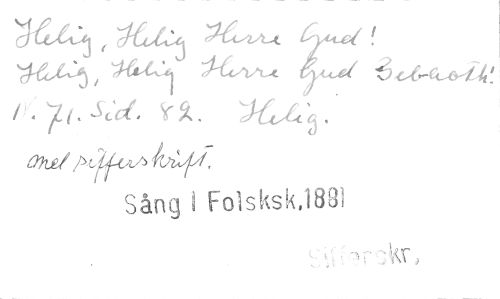 Helig, Helig Herre Gud!
Helig, Helig Herre Gud Zebaoth!
N. 71. Sid. 82. Helig.
med sifferskrift.
Sång I Folsksk.1881
Sifferskr.